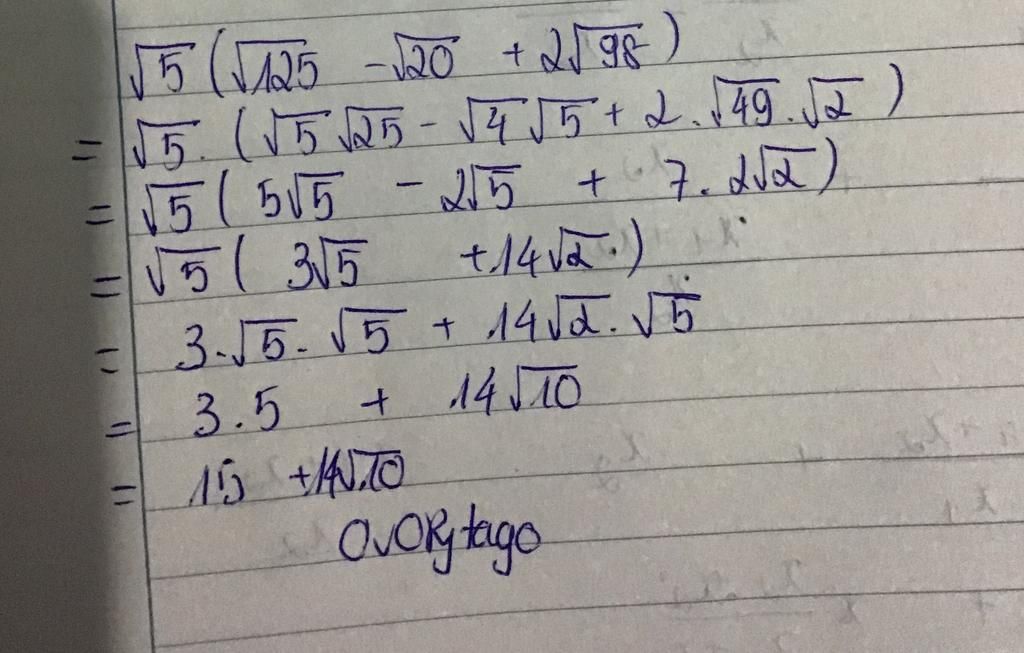 √5 (√125 - √20 + 2√98)
= √5 . (√5 √25 - √4 √5 + 2 . √49 . √2)
= √5 ( 5√5 - 2√5 + 7 . 2√2)
= √5 ( 3√5 + 14√2 .)
= 3 . √5 . √5 + 14√2 . √5
= 3 . 5 + 14√10
= 15 + 14√10